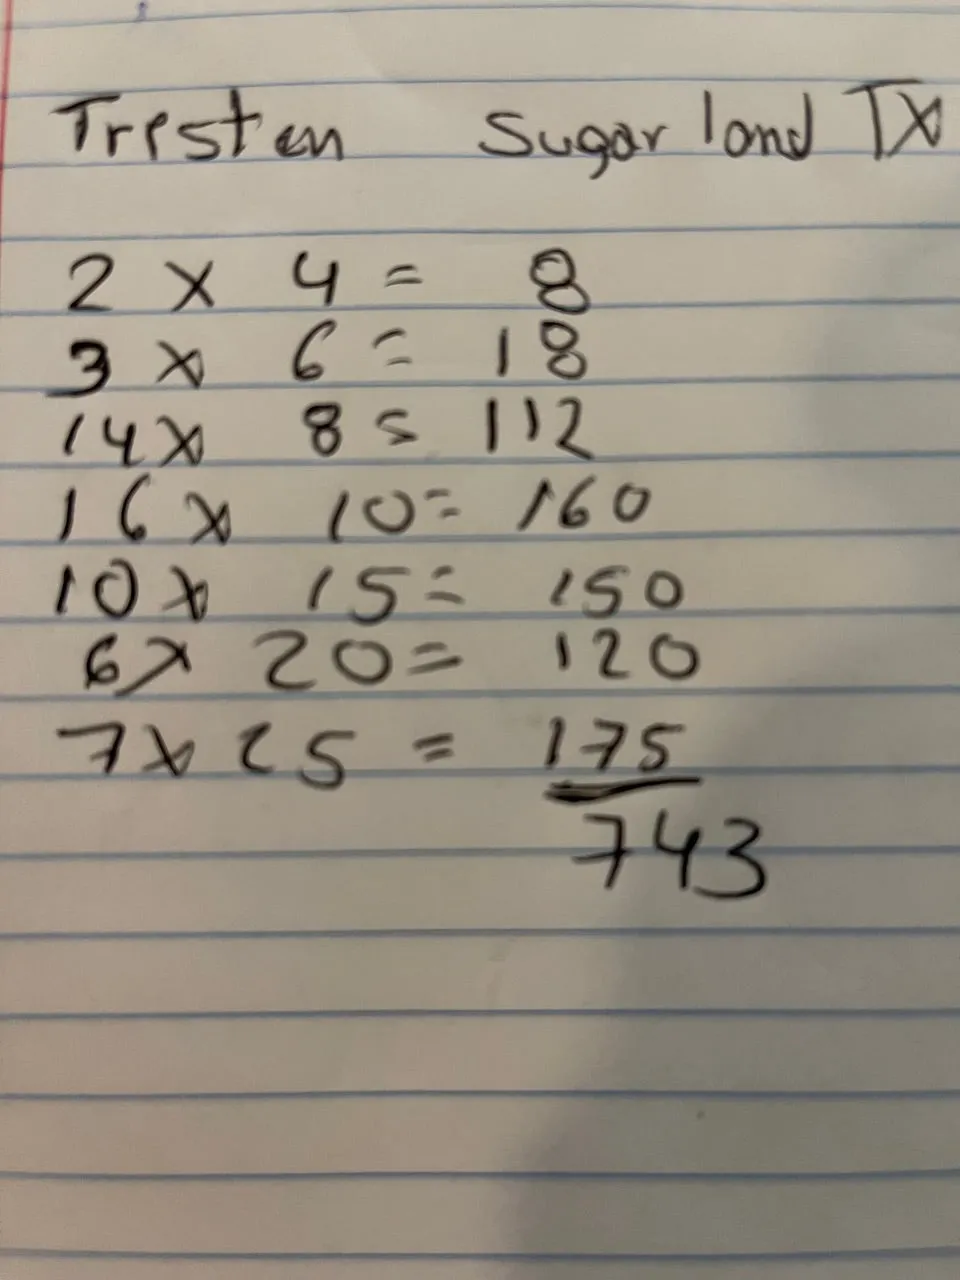 Tresten Sugar land TX
2 x 4 = 8
3 x 6 = 18
14 x 8 = 112
16 x 10 = 160
10 x 15 = 150
6 x 20 = 120
7 x 25 = 175
743